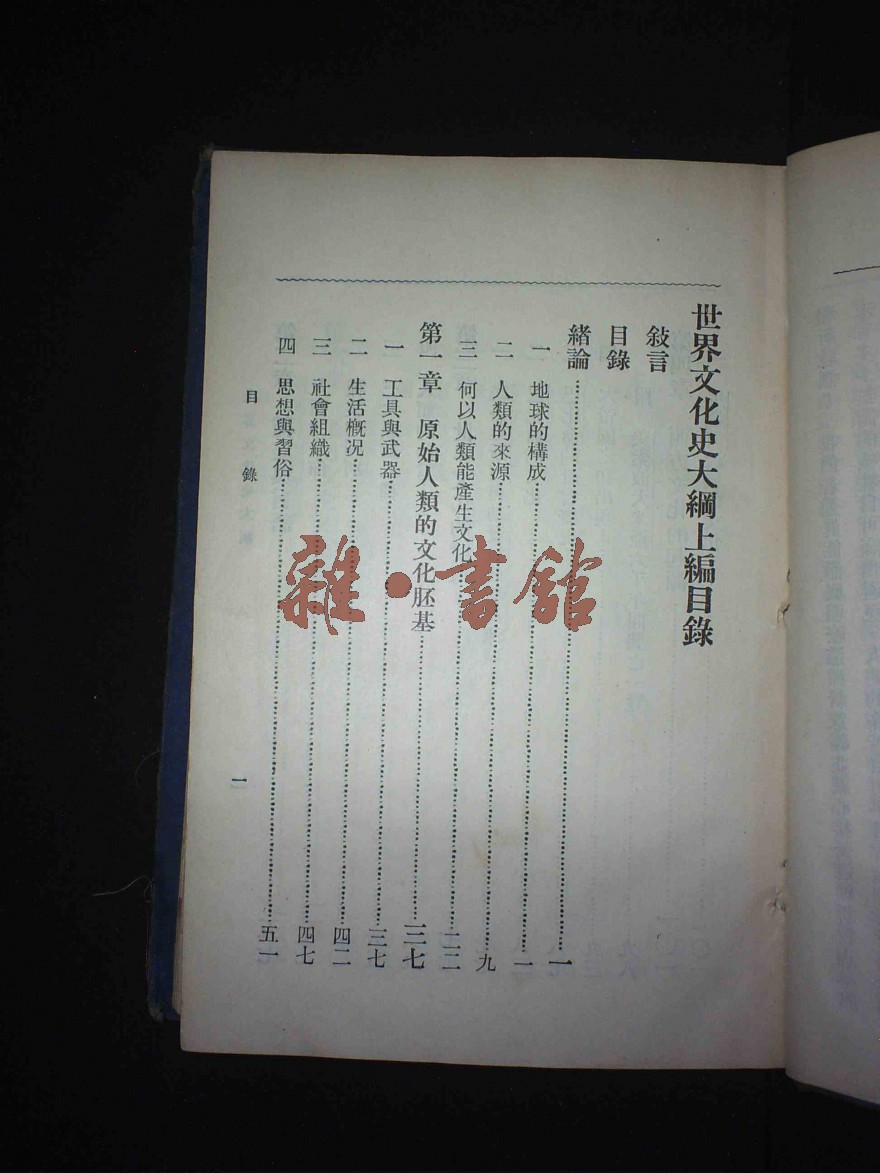 世界文化史大綱上編目錄
敍言
目錄
緒論……一
一 地球的構成……一
二 人類的來源……九
三 何以人類能產生文化……二二
第一章 原始人類的文化胚基……三七
一 工具與武器……三七
二 生活概況……四二
三 社會組織……四七
四 思想與習俗……五一
目錄
一
雜·書館